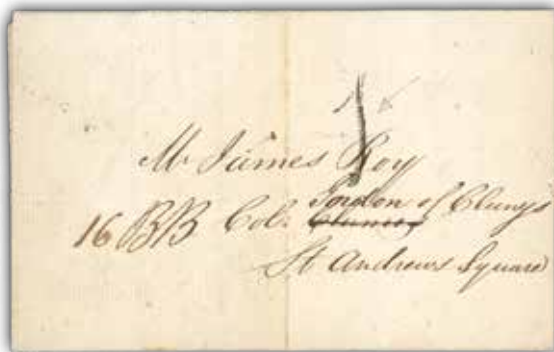 Mr James Roy
16 BB Col: Gordon of Clunys
St Andrews Square